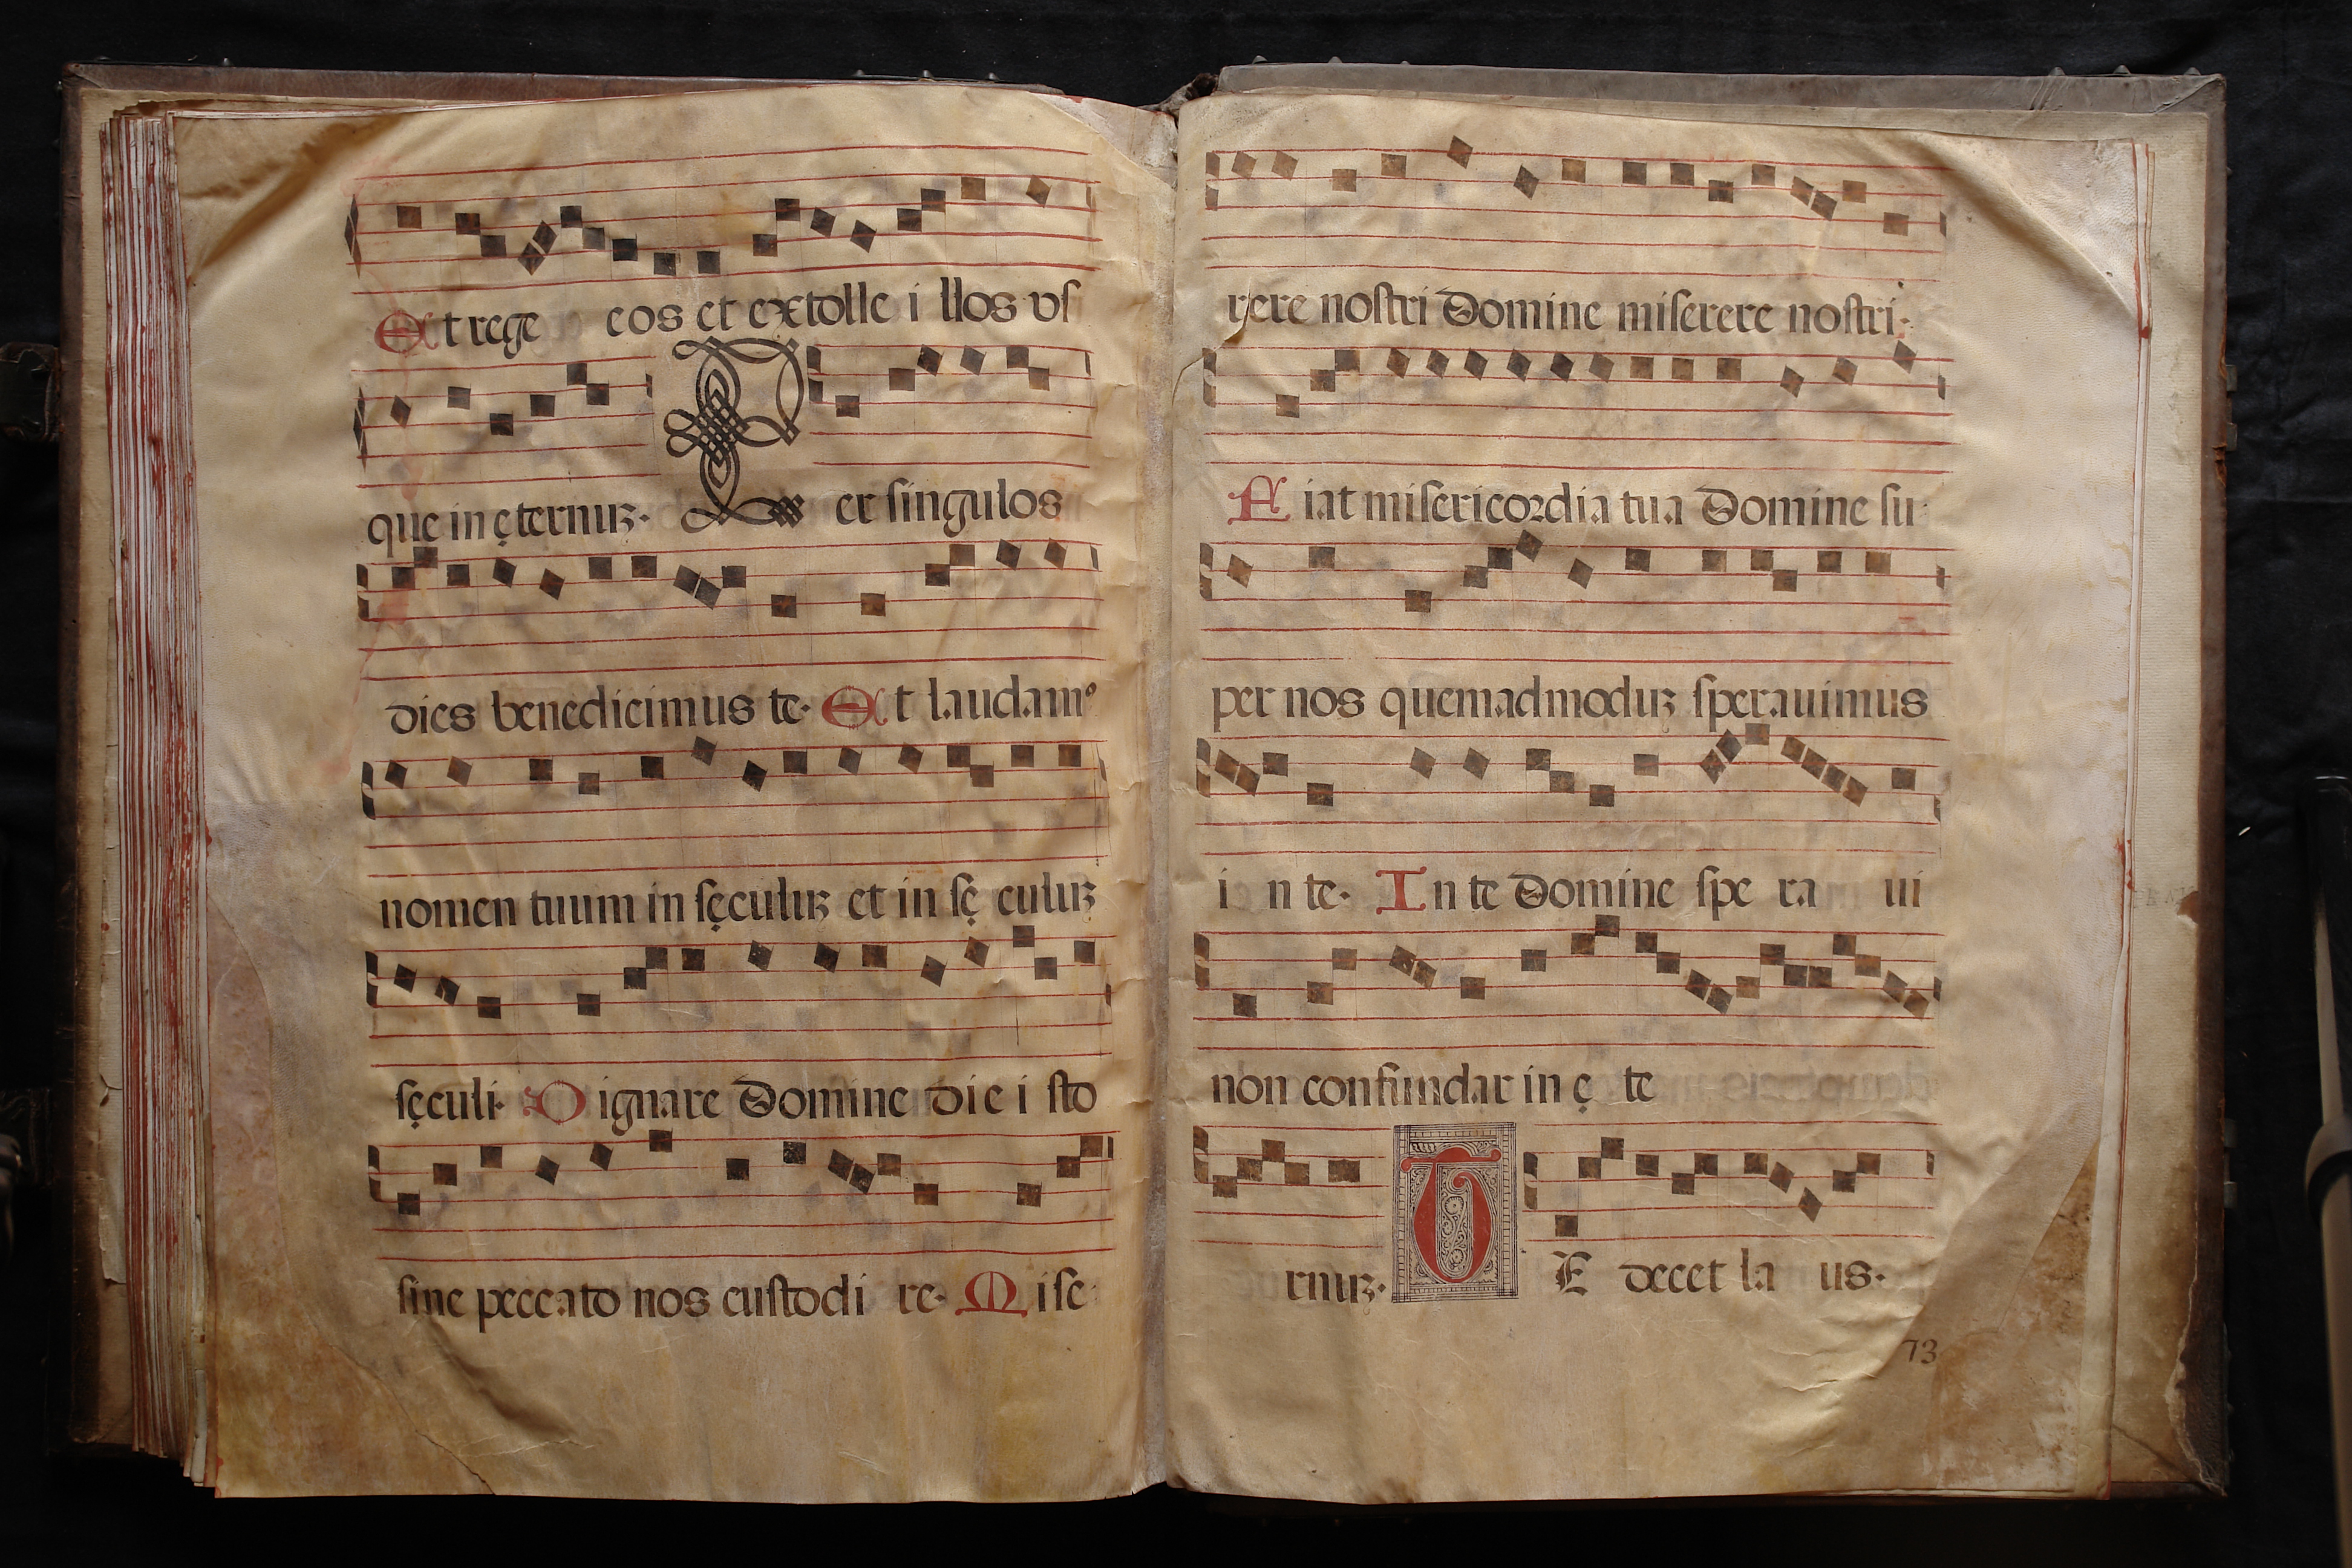 Et rege eos et extolle i llos vſ
que in ęternuꝫ. Per ſingulos
dies benedicimus te. Et laudamꝰ
nomen tuum in ſęculuꝫ et in ſę culuꝫ
ſęculi. Dignare Domine die i ſto
ſine peccato nos cuſtodi re. Miſe
rere noſtri Domine miſerere noſtri.
Fiat miſericordia tua Domine ſu
per nos quemadmoduꝫ ſperauimus
i n te. In te Domine ſpe ra ui
non confundar in ę te
rnuꝫ. TE decet la us.
73